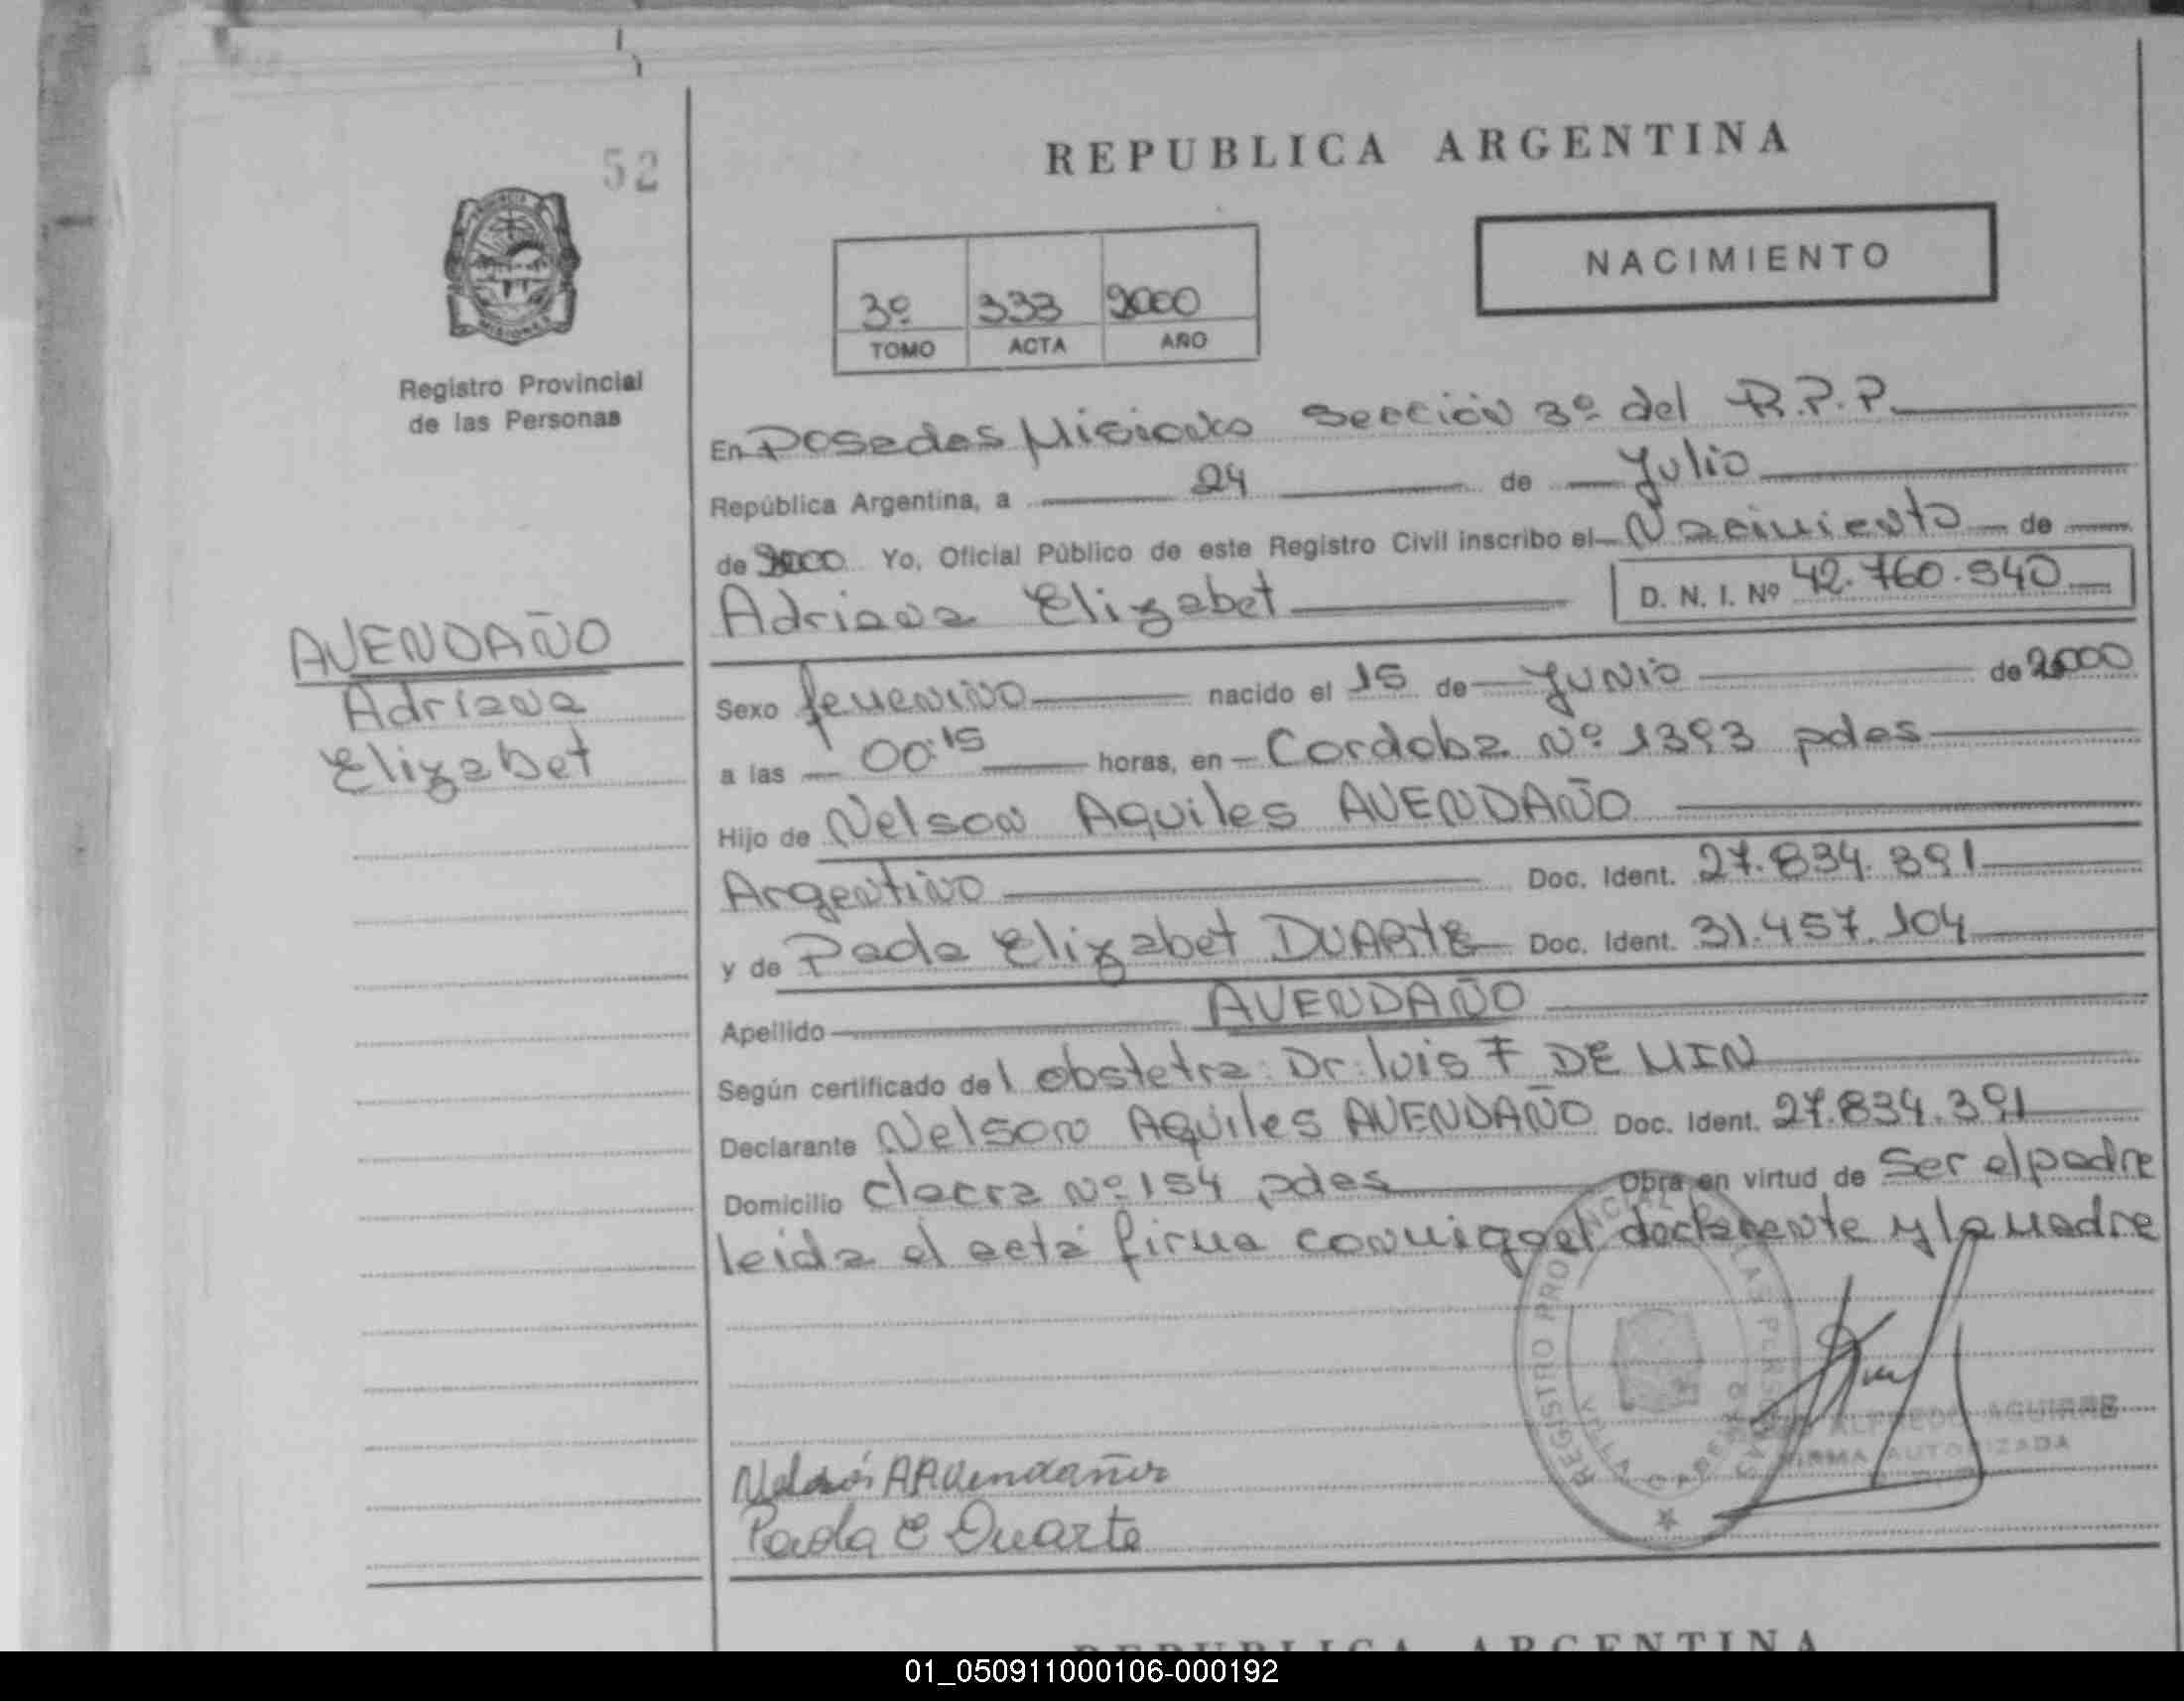 52
REPUBLICA ARGENTINA
NACIMIENTO
3º 333 2000
TOMO ACTA AÑO
Registro Provincial
de las Personas
En Posadas Misiones Sección 3º del R.P.P.
República Argentina, a 24 de Julio
de 2000 Yo, Oficial Público de este Registro Civil inscribo el Nacimiento de
Adriana Elizabet D. N. I. Nº 42.760.940
AVENDAÑO
Adriana
Elizabet
Sexo femenino nacido el 15 de Junio de 2000
a las 00:15 horas, en Cordoba Nº 1393 pdas
Hijo de Nelson Aquiles AVENDAÑO
Argentino Doc. Ident. 27.834.391
y de Paola Elizabet DUARTE Doc. Ident. 31.457.104
Apellido AVENDAÑO
Según certificado del obstetra: Dr. Luis F DE MIN
Declarante Nelson Aquiles AVENDAÑO Doc. Ident. 27.834.391
Domicilio Chacra Nº 154 pdas Obra en virtud de Ser el padre
leida el acta firma conmigo el declarente y la madre
REGISTRO PROVINCIAL DE LAS PERSONAS
ALFREDO AGUIRRE
FIRMA AUTORIZADA
Nelson A Avendaño
Paola E Duarte
REPUBLICA ARGENTINA
01_050911000106-000192